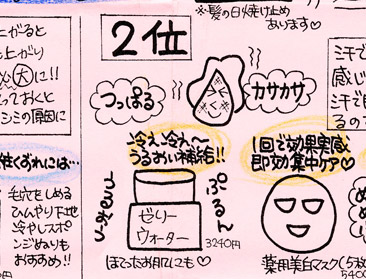 ※髪の日焼け止め
あります♡
上がると
上がり
大に!!
っておくと
シミの原因に
2位
つっぱる
カサカサ
汗で
感じ
汗で
るので
冷え冷え〜
うるおい補給!!
1回で効果実感
即効集中ケア♡
くずれには…
毛穴をしめる
ひんやり下地
冷やしスポ
ンジぬりも
おすすめ!!
ぷるん
ゼリー
ウォーター
3240円
ほてったお肌にも♡
薬用美白マスク(5枚
540